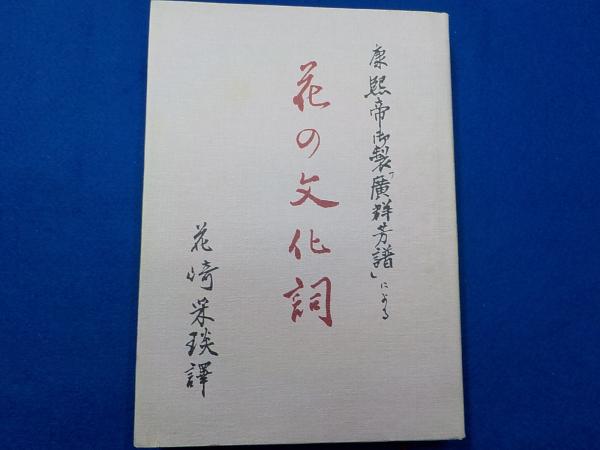 康熙帝御製「廣群芳譜」による
花の文化詞
花﨑采琰譯